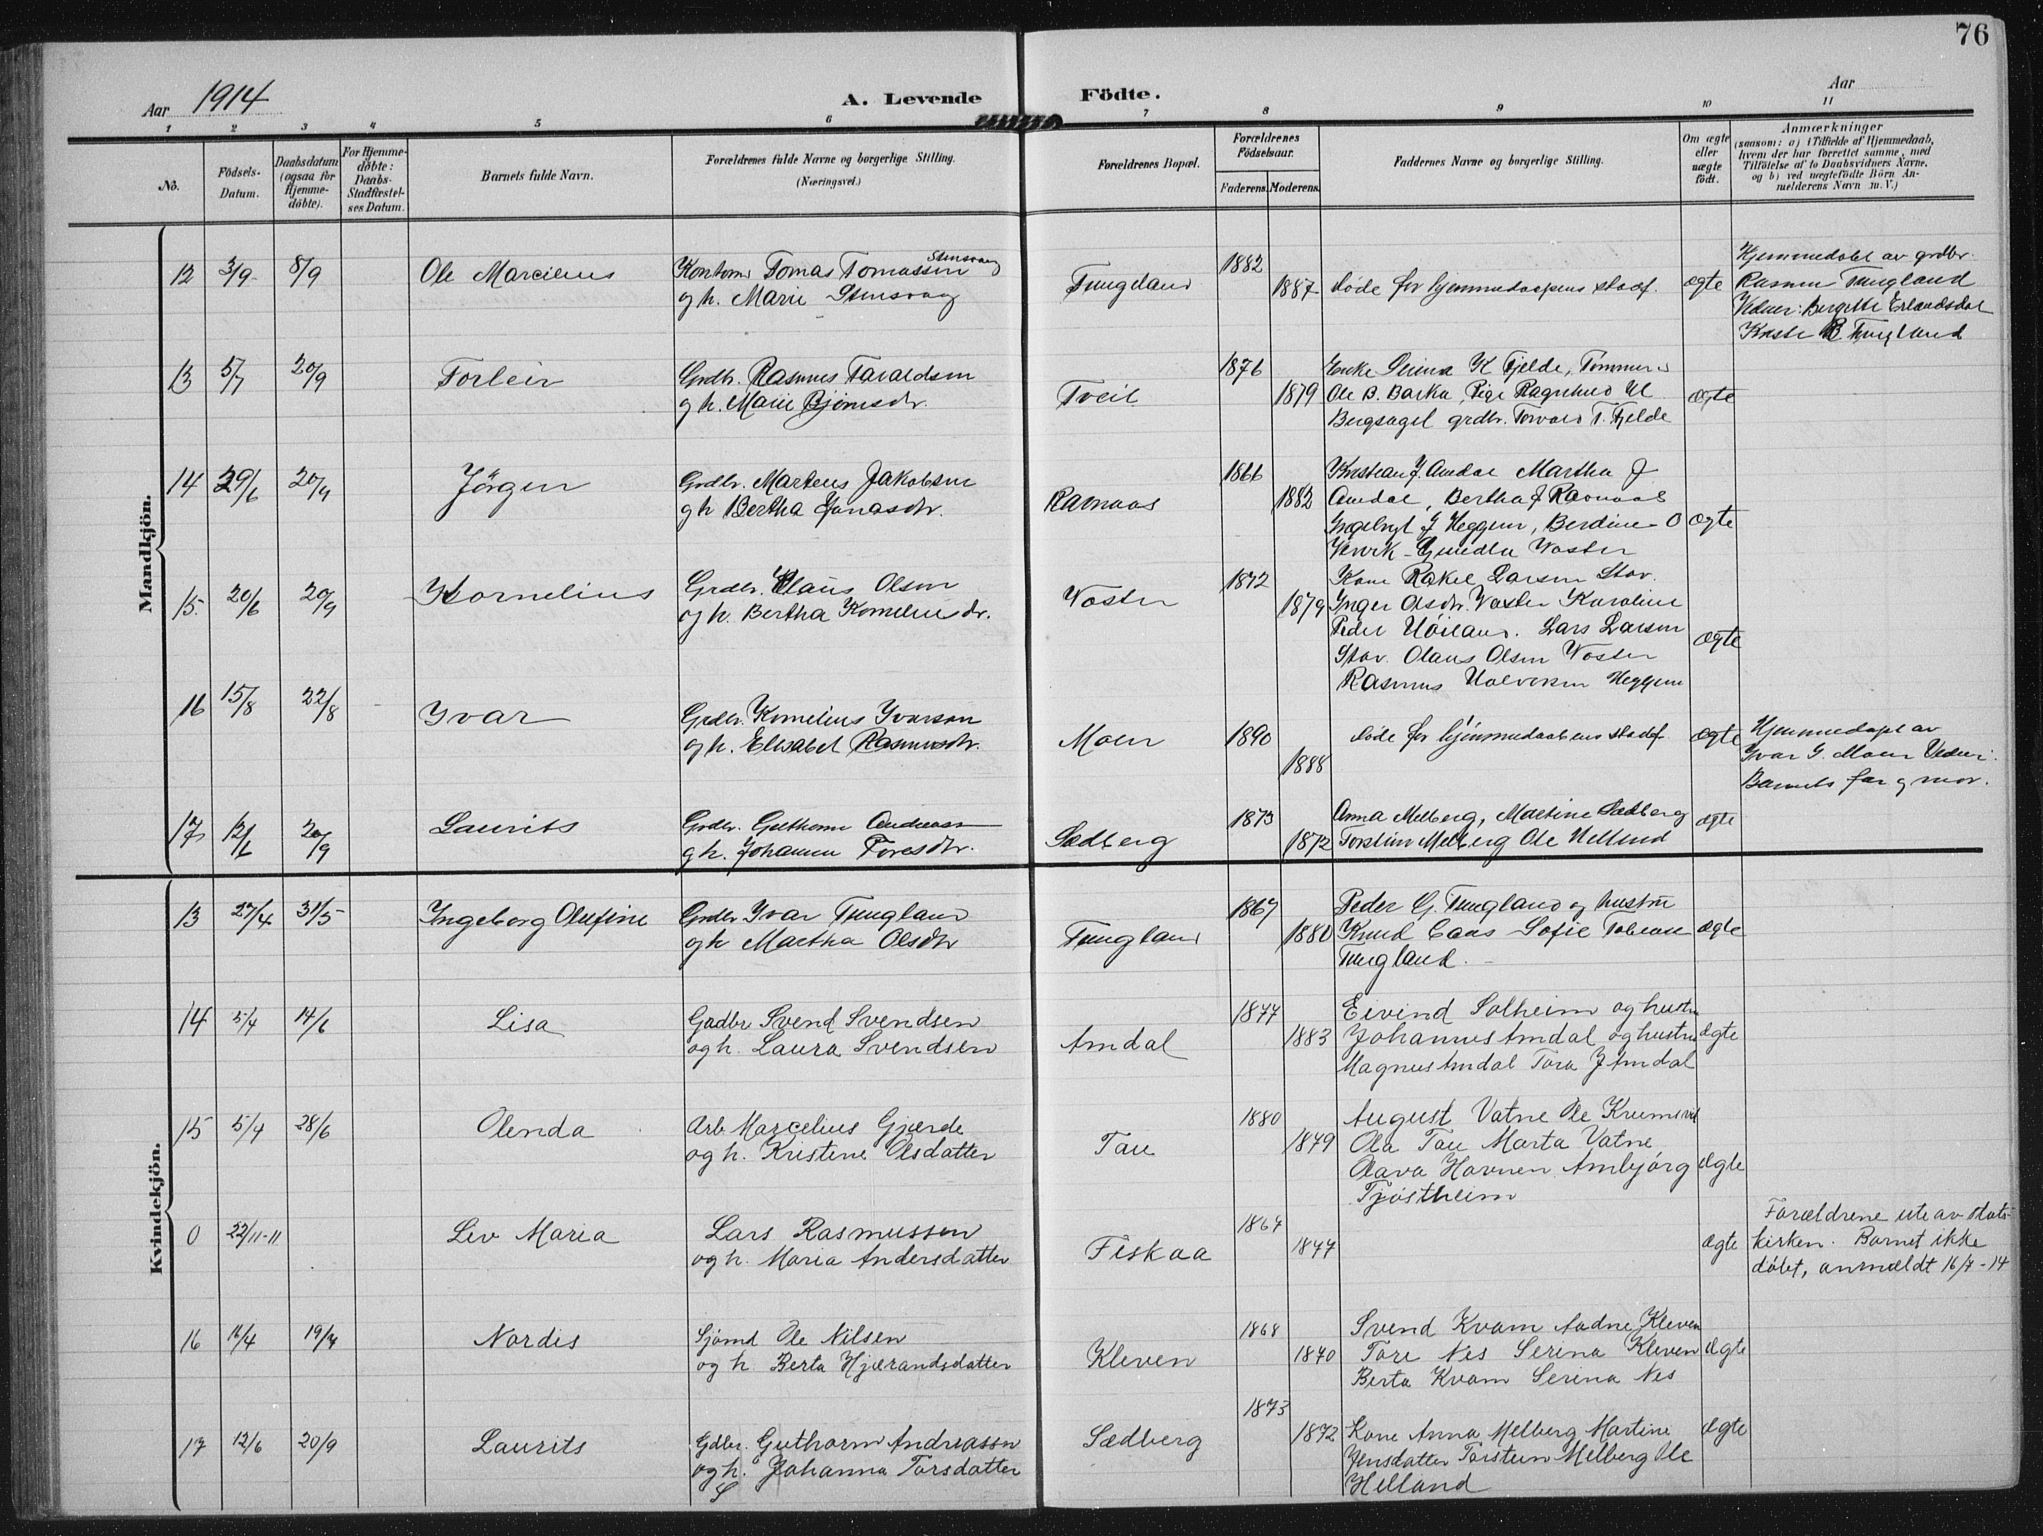 76
Aar 1914 A. Levende Födte. Aar
1 2 3 4 5 6 7 8 9 10 11
No.
Födsels-Datum.
Daabsdatum (ogsaa for Hjemme-döbte).
For Hjemme-döbte: Daabs-Stadfæstel-ses Datum.
Barnets fulde Navn.
Forældrenes fulde Navne og borgerlige Stilling.
(Næringsvei.)
Forældrenes Bopæl.
Forældrenes Födselsaar.
Faderens. Moderens.
Faddernes Navne og borgerlige Stilling.
Om ægte eller uægte födt.
Anmærkninger
(saasom: a) i Tilfælde af Hjemmedaab,
hvem der har forrettet samme, med
Tilföielse af to Daabsvidners Navne,
og b) ved uægtefödte Börn An-
melderens Navn m. V.)
Mandkjön.
12 3/9 8/9 Ole Marcilius
Tomas Tomassen Stensvag
og h. Marie Stensvag
Tungland
1882
1887
døde før hjemmedaapens stadf.
ægte
Hjemmedøbt av grdbr.
Rasmus Tungland
Vidner: Bergitte Erlandsdal
B Tungland
13 5/7 20/9 Torleiv
Grdbr. Rasmus Taraldsen
og h. Marie Bjørnsdtr.
Tveit
1876
1879
Enke Serina K Fjelde, Tømmerm
Ole B. Barka, Pige Ragnhild
Bergsagel grdbr. Torvald T. Fjelde
ægte
14 29/6 20/9 Jörgen
Grdbr. Martens Jakobsen
og h Bertha Jonasdtr.
Ramnaas
1866
1882
Kristian J. Amdal Martha J
Amdal, Bertha J Ramnaas
J Heggem, Berdine O
Gundla Voster
ægte
15 20/6 20/9 Kornelius
Grdbr. Claus Olsen
og h. Bertha Korneliusdr.
Voster
1872
1879
Kone Rakel Larsen Stav.
Inger Olsdtr. Voster Karoline
Peder Høiland. Lars Larsen
Stav. Olaus Olsen Voster
Rasmus Halvorsen Heggem
ægte
16 15/8 22/8 Yvar
Grdbr. Kornelius Yvarson
og h. Elisabet Rasmusdtr.
Moen
1890
1888
døde før hjemmedaabens stadf.
ægte
Hjemmedøpt av
Yvar G. Moen Vidner:
Barnets far og mor.
17 12/6 20/9 Laurits
Grdbr. Guthorm Andreasn
og h. Johanna Toresdtr.
Sædberg
1873
1872
Anna Melberg, Martine Sædberg
Torstein Melberg Ole Helland
ægte
Kvindekjön.
13 27/4 31/5 Ingeborg Olufine
Grdbr Yvar Tungland
og h Martha Olsdtr
Tungland
1867
1880
Peder G. Tungland og hustru
Knud Caas Sofie Tobiase
Tungland.
ægte
14 5/4 14/6 Lisa
Gadbr Svend Svendsen
og h. Laura Svendsen
Amdal
1877
1883
Eivind Solheim og hustru
Johannes Amdal og hustru
Magnus Amdal Tora J Amdal
ægte
15 5/4 28/6 Olenda
Arb Marcelius Gjerde
og h. Kristine Olsdatter
Tau
1880
1879
August Vatne Ole Krumsvik
Ola Tau Marta Vatne
Olava Havnen Ambjörg
Tjöstheim
ægte
0 22/11-11 Liv Maria
Lars Rasmussen
og h. Maria Andersdatter
Fiskaa
1864
1877
ægte
Forældrene ute av stats-
kirken. Barnet ikke
döbt, anmældt 16/7-14
16 16/4 19/7 Nordis
Sjömd Ole Nilsen
og h. Berta Hjærandsdatter
Kleven
1868
1870
Svend Kvam Aadne Kleven
Tore Nes Serina Kleven
Berta Kvam Serina Nes
ægte
17 12/6 20/9 Laurits
Gdbr. Guthorm Andreassn
og h. Johanna Torsdatter
S
Sædberg
1873
1872
Kone Anna Melberg Martine
Jensdatter Torstein Melberg Ole
Helland
ægte